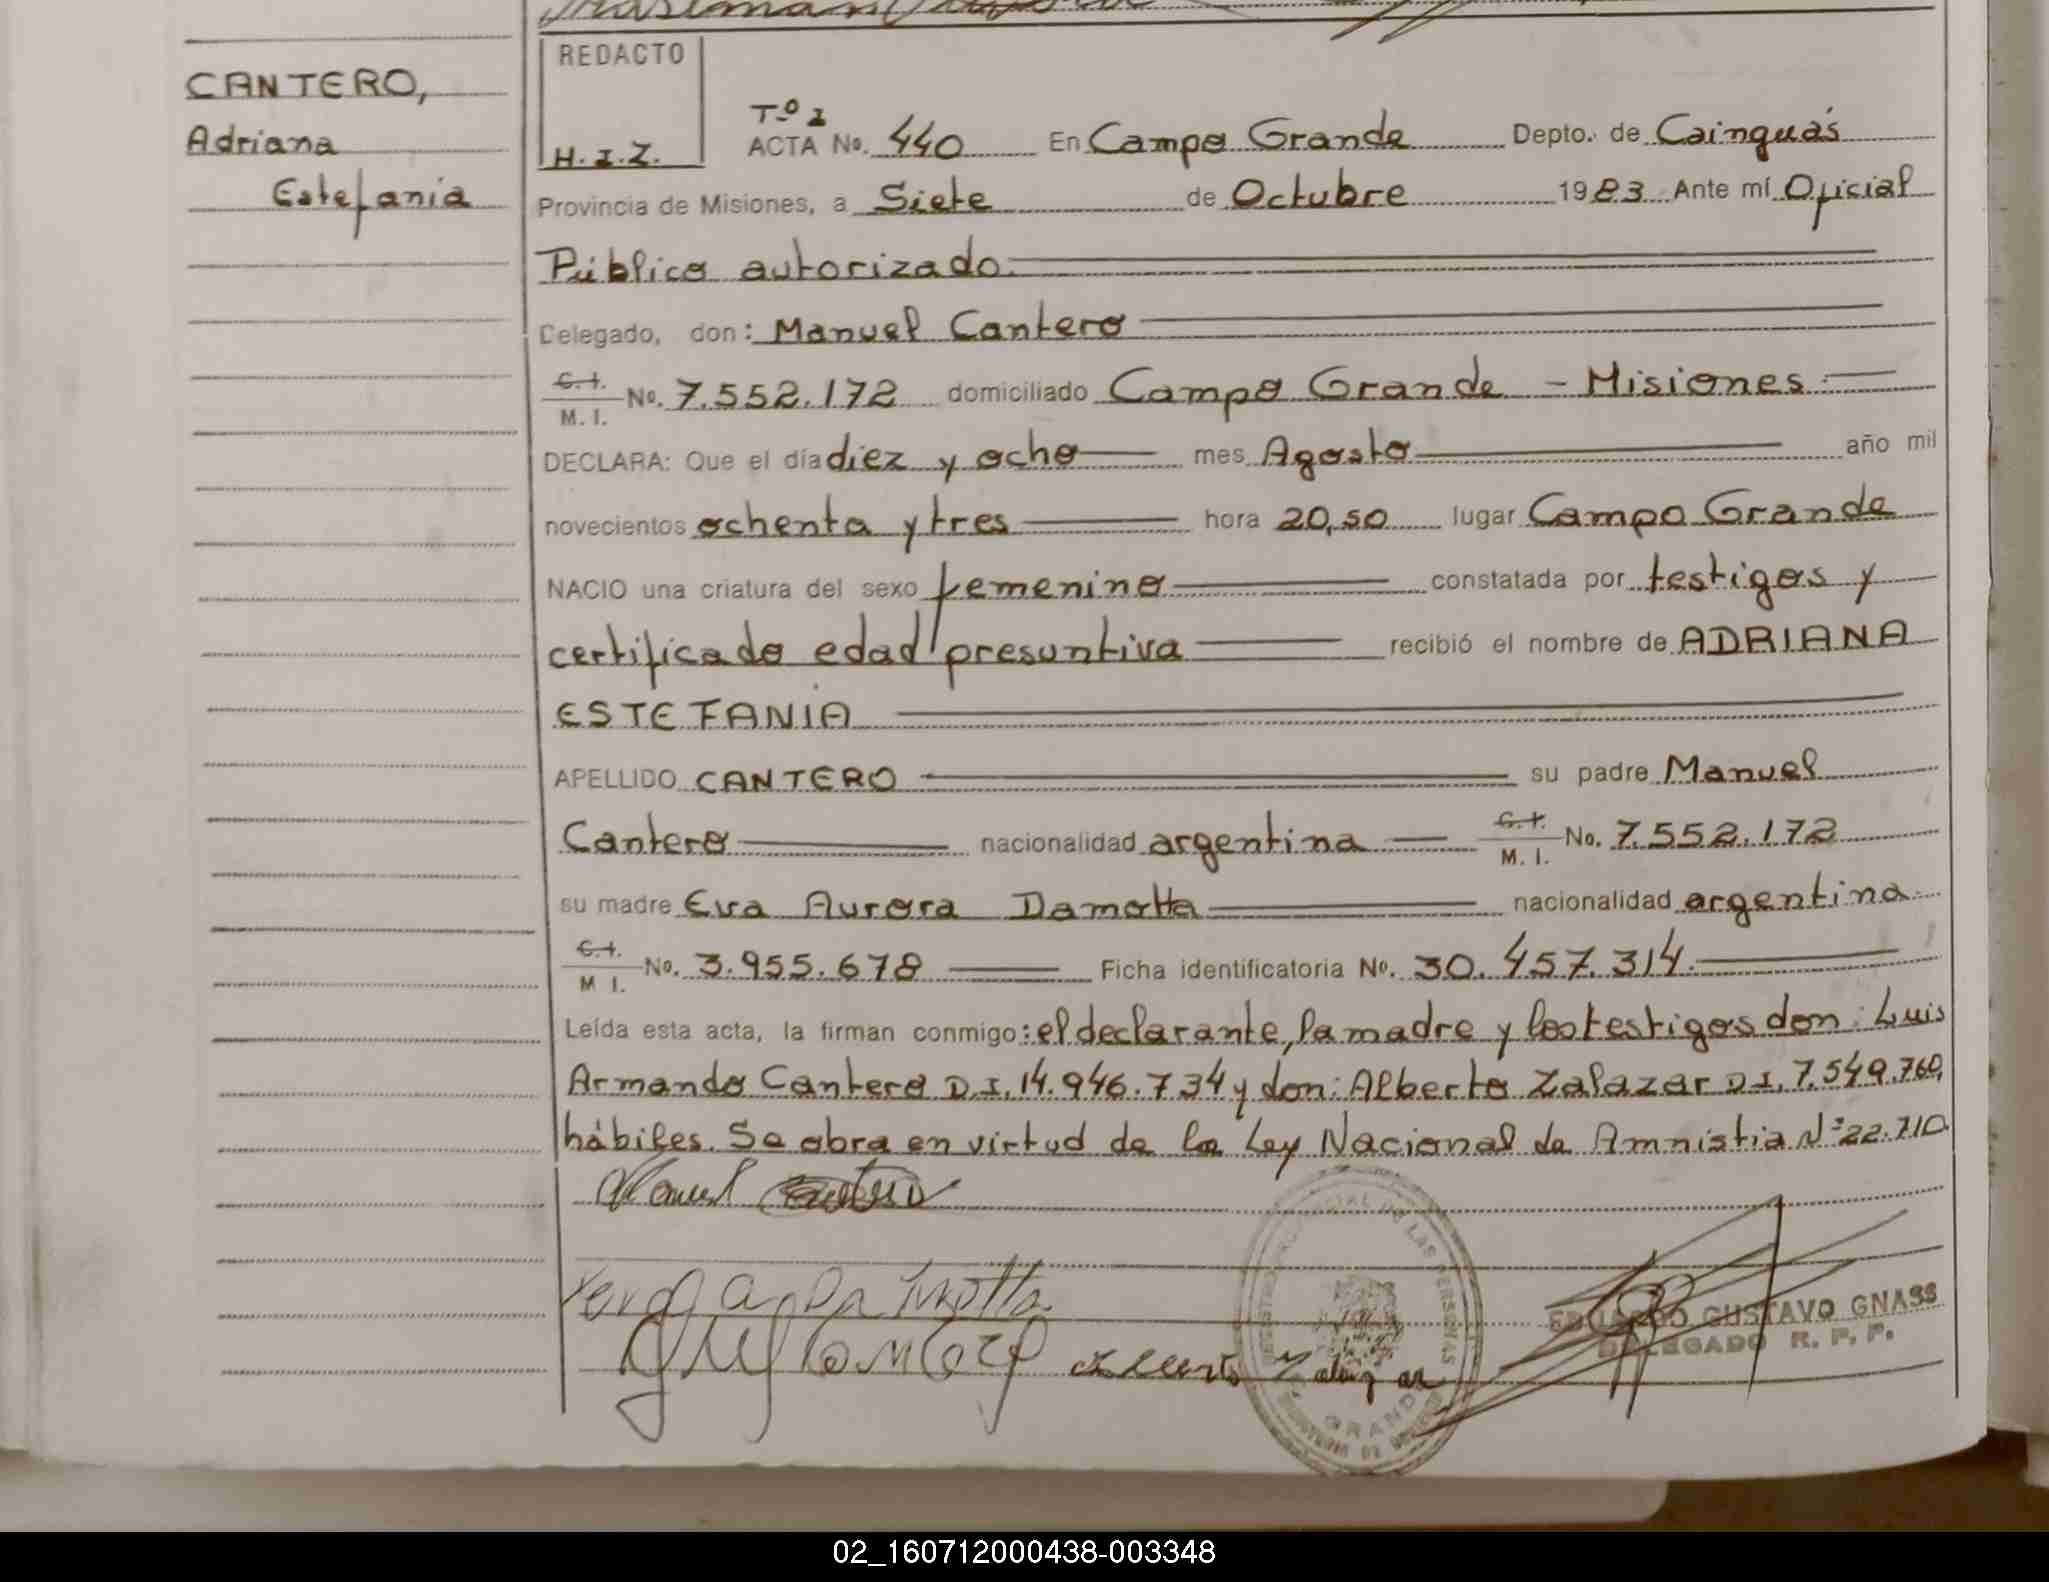 CANTERO,
Adriana
Estefania
REDACTO
H.I.Z.
Tº 2
ACTA No. 440 En Campo Grande Depto. de Cainguás
Provincia de Misiones, a Siete de Octubre 1983 Ante mí Oficial
Público autorizado
Delegado, don: Manuel Cantero
C.I.
M. I. No. 7.552.172 domiciliado Campo Grande - Misiones
DECLARA: Que el día diez y ocho mes Agosto año mil
novecientos ochenta y tres hora 20,50 lugar Campo Grande
NACIO una criatura del sexo femenino constatada por testigos y
certificado edad presuntiva recibió el nombre de ADRIANA
ESTEFANIA
APELLIDO CANTERO su padre Manuel
Cantero nacionalidad argentina C.I. M. I. No. 7.552.172
su madre Eva Aurora Damotta nacionalidad argentina
C.I.
M I. No. 3.955.678 Ficha identificatoria No. 30.457.314.
Leída esta acta, la firman conmigo: el declarante, la madre y los testigos don: Luis
Armando Cantero D.I. 14.946.734 y don: Alberto Zalazar D.I. 7.549.760,
hábiles. Se obra en virtud de la Ley Nacional de Amnistia Nº 22.710
Manuel Cantero
DE LAS PERSONAS
GRANDE
EDUARDO GUSTAVO GNASS
DELEGADO R. P. P.
02_160712000438-003348